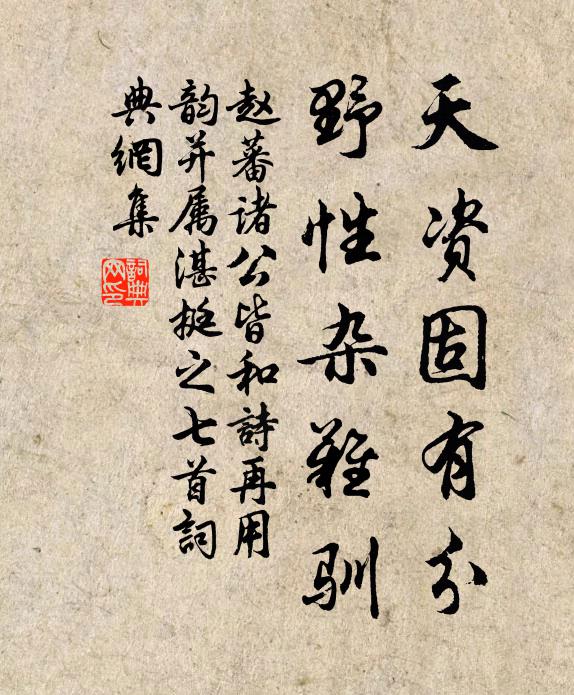 天资固有分
野性杂难驯
赵蕃诸公皆和詩再用
韵并属湛挺之七首詞
典網集
詞典網印